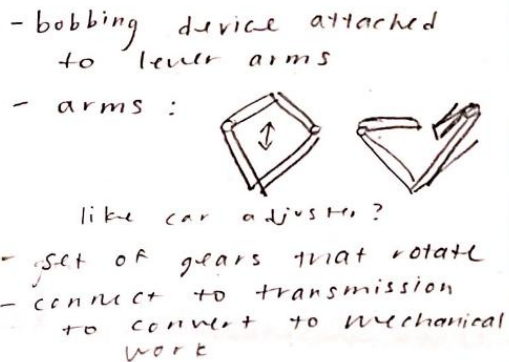 - bobbing device attached
to lever arms
- arms :
like car adjuster?
- set of gears that rotate
- connect to transmission
to convert to mechanical
work